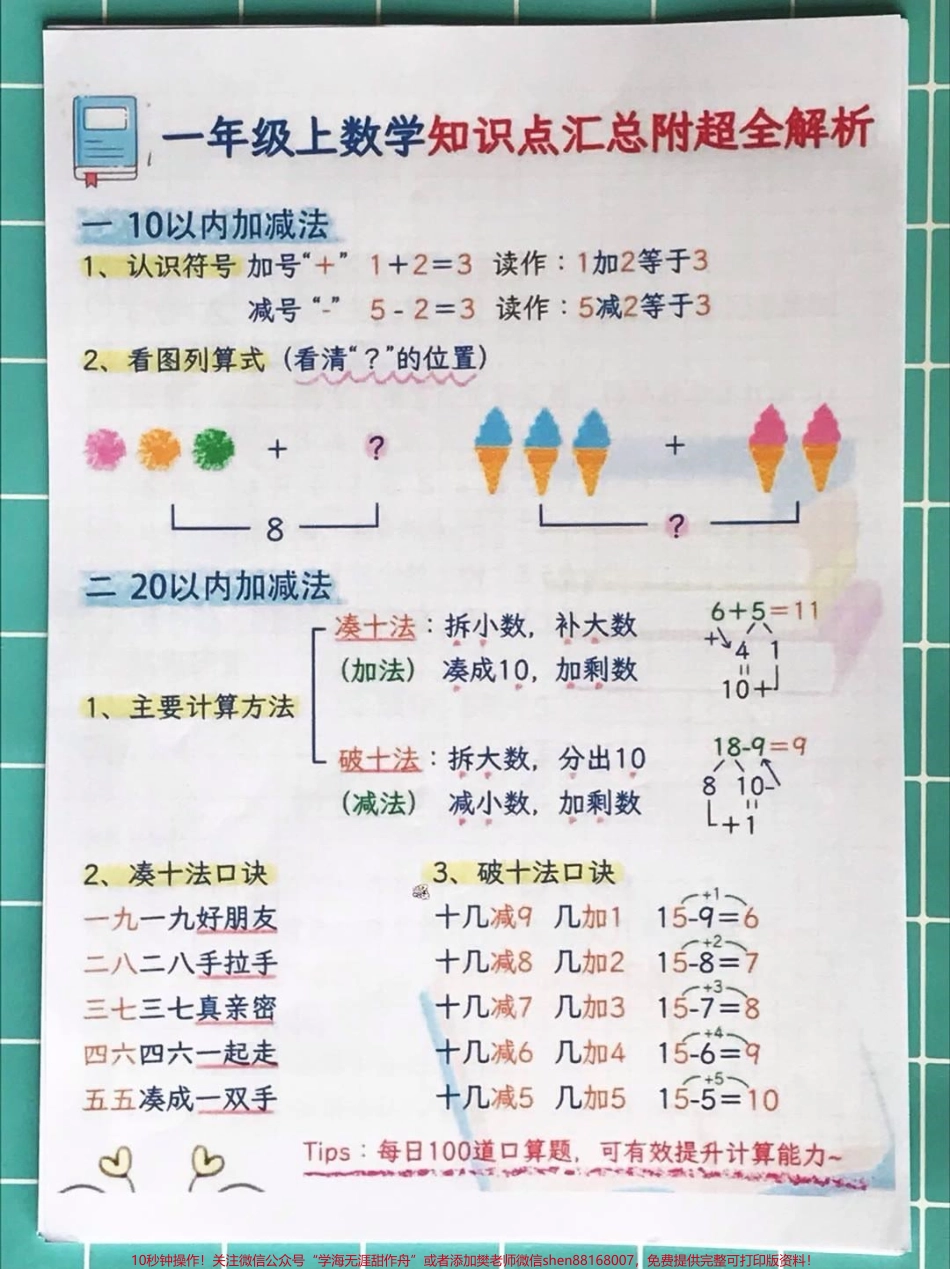 一年级上数学知识点汇总附超全解析
一 10以内加减法
1、认识符号 加号“+” 1+2=3 读作：1加2等于3
减号“-” 5-2=3 读作：5减2等于3
2、看图列算式（看清“？”的位置）
+ ? +
8 ?
二 20以内加减法
1、主要计算方法
凑十法：拆小数，补大数
（加法） 凑成10，加剩数
6+5=11
+ 4 1
=
10+
破十法：拆大数，分出10
（减法） 减小数，加剩数
18-9=9
8 10-
=
+1
2、凑十法口诀
一九一九好朋友
二八二八手拉手
三七三七真亲密
四六四六一起走
五五凑成一双手
3、破十法口诀
+1
十几减9 几加1 15-9=6
+2
十几减8 几加2 15-8=7
+3
十几减7 几加3 15-7=8
+4
十几减6 几加4 15-6=9
+5
十几减5 几加5 15-5=10
Tips：每日100道口算题，可有效提升计算能力~
10秒钟操作！关注微信公众号“学海无涯甜作舟”或者添加樊老师微信shen88168007，免费提供完整可打印版资料！